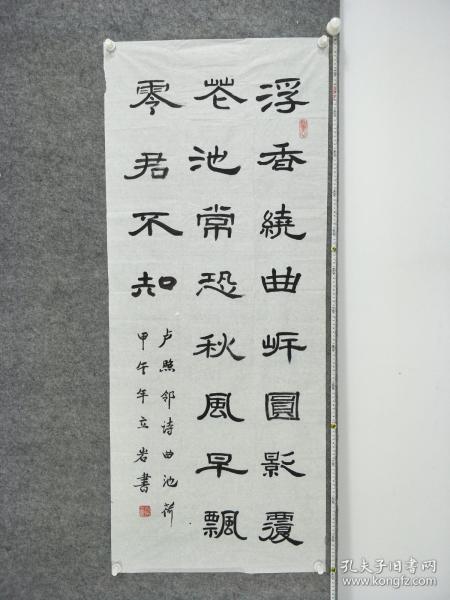 浮香繞曲岍圓影覆
花池常恐秋風早飄
零君不知
卢照邻诗曲池荷
甲午年立岩書
孔夫子旧书网
www.kongfz.com